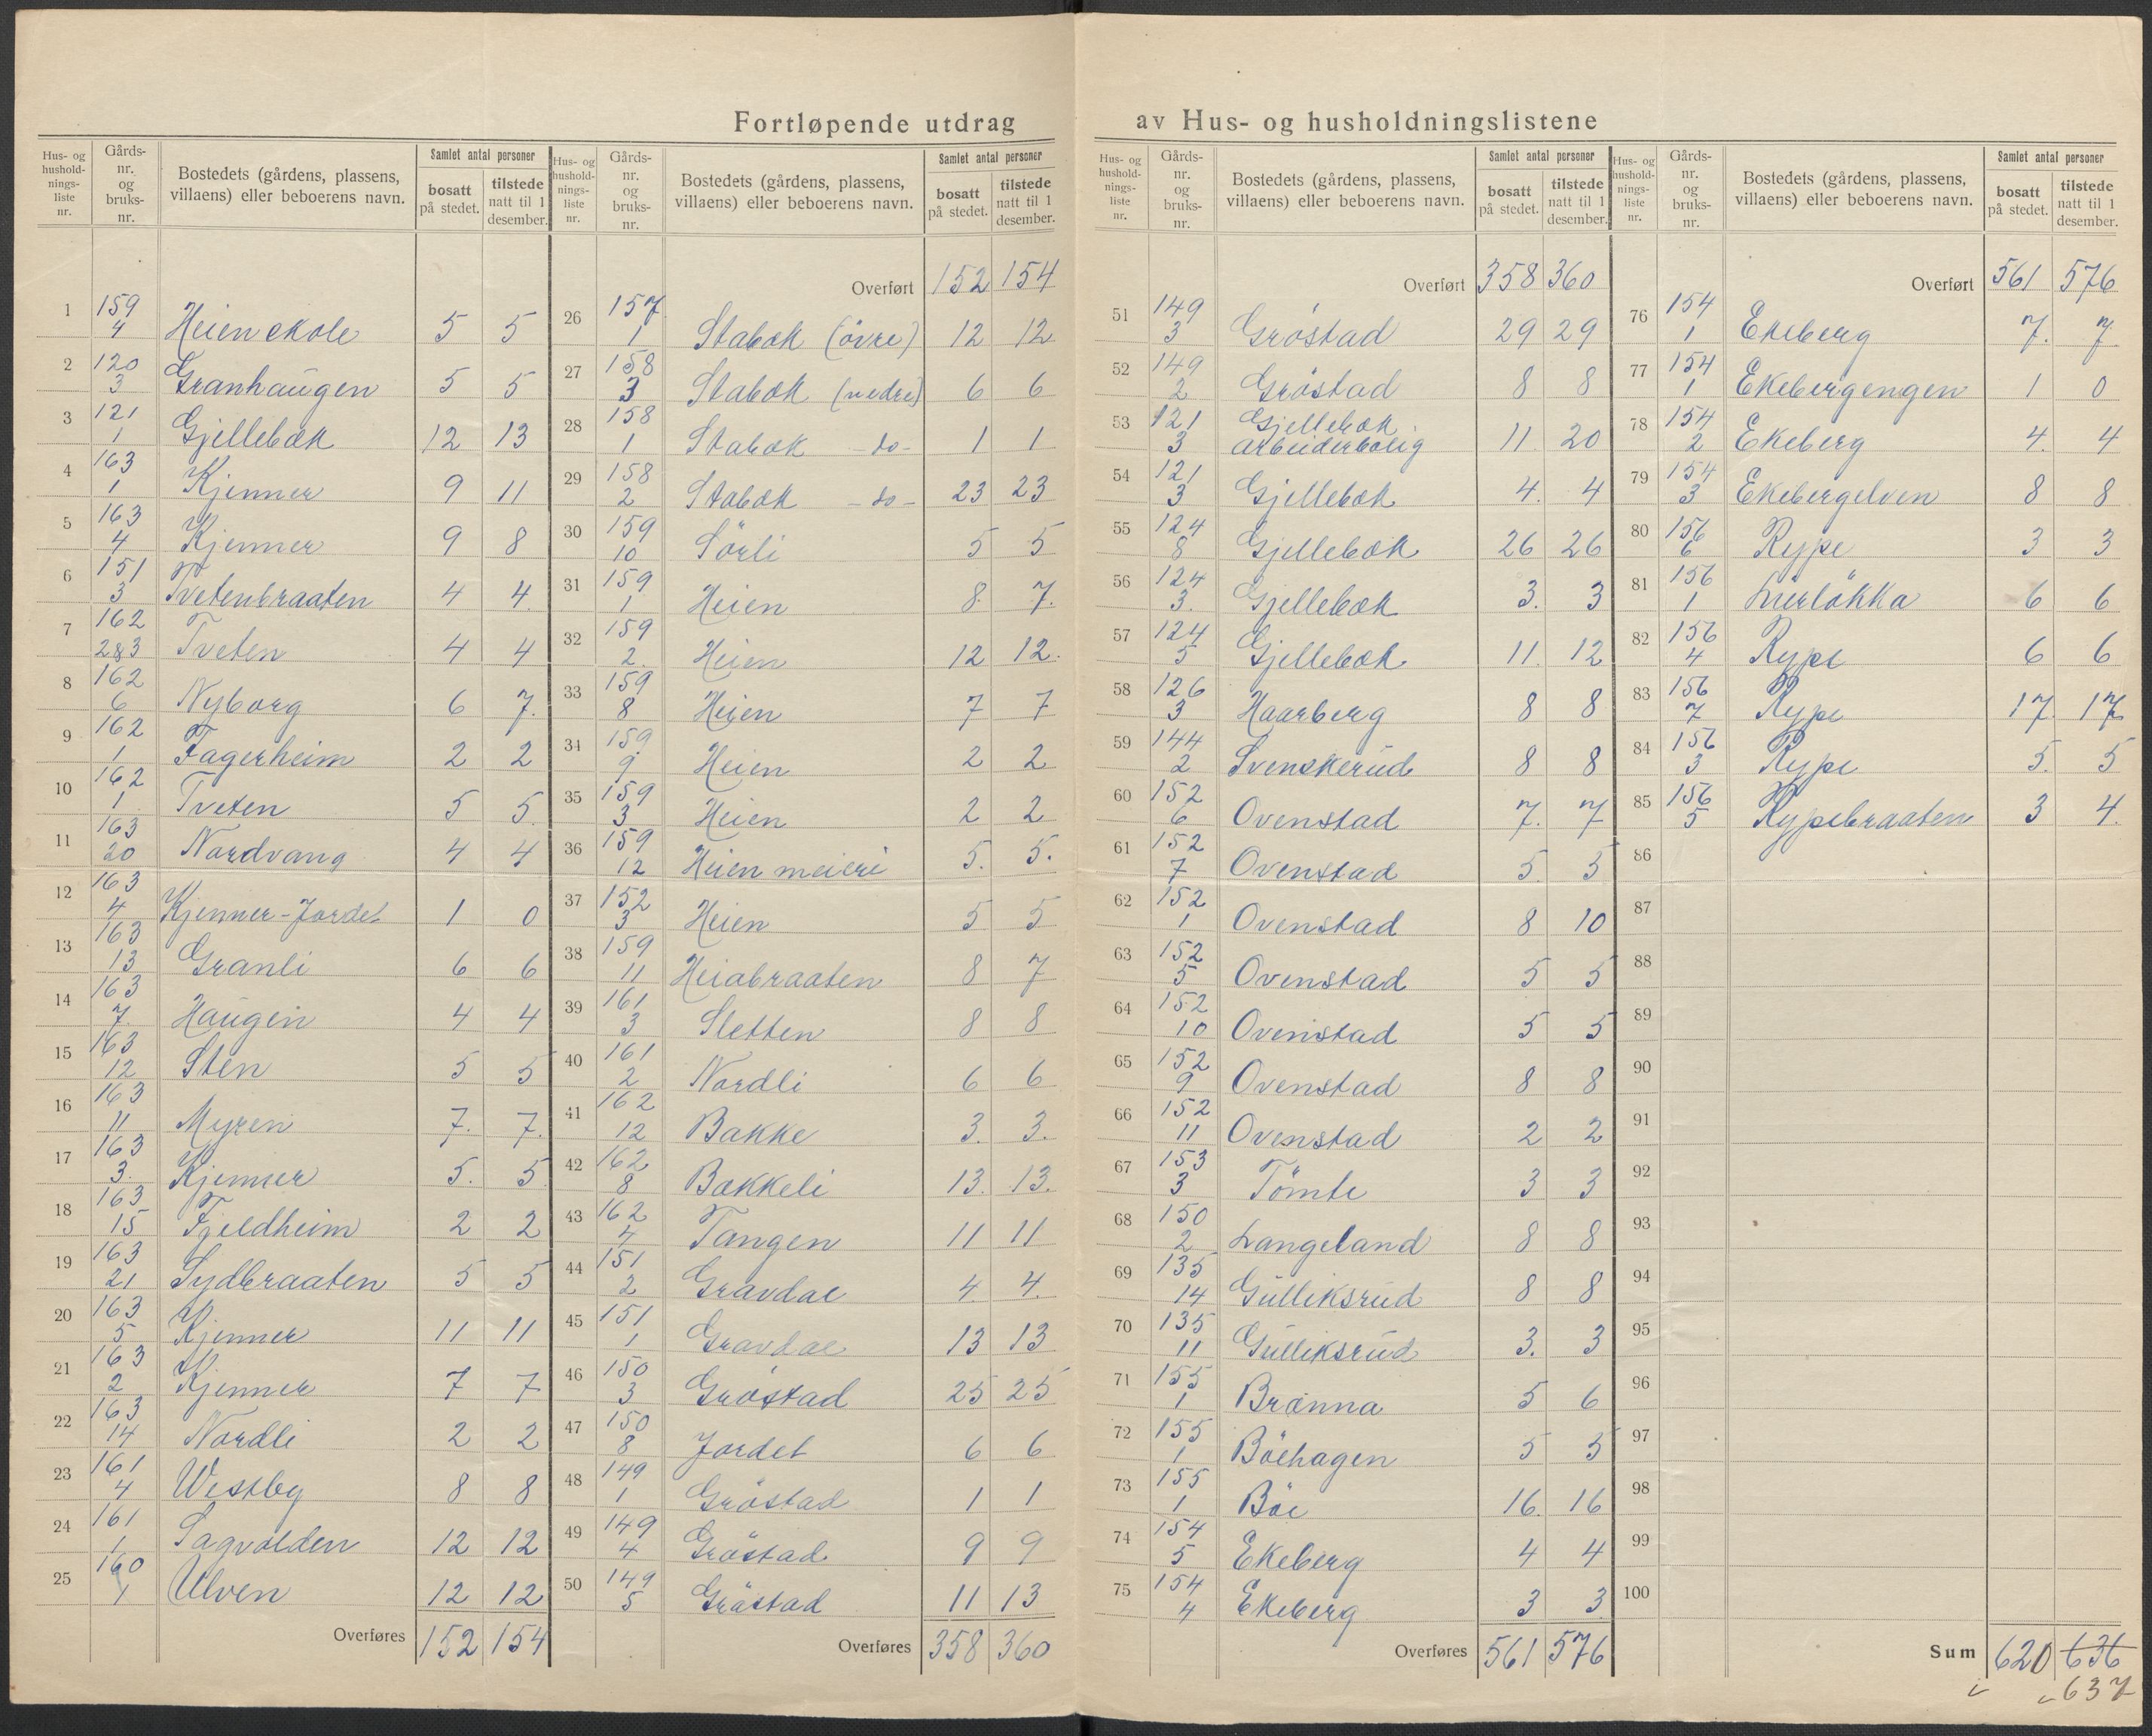 Fortløpende utdrag av Hus- og husholdningslistene
Hus- og husholdnings-liste nr. | Gårds-nr. og bruks-nr. | Bostedets (gårdens, plassens, villaens) eller beboerens navn. | Samlet antal personer bosatt på stedet. | tilstede natt til 1 desember.
1 159 4 Heien skole 5 5
2 120 3 Granhaugen 5 5
3 121 1 Gjellebæk 12 13
4 163 1 Kjenner 9 11
5 163 4 Kjenner 9 8
6 151 3 Tvetenbraaten 4 4
7 162 2&3 Tveten 4 4
8 162 6 Nyborg 6 7
9 162 1 Fagerheim 2 2
10 162 1 Tveten 5 5
11 163 20 Nordvang 4 4
12 163 4 Kjenner-Jordet 1 0
13 163 13 Granli 6 6
14 163 7 Haugen 4 4
15 163 12 Sten 5 5
16 163 11 Myren 7 7
17 163 3 Kjenner 5 5
18 163 15 Fjeldheim 2 2
19 163 21 Sydbraaten 5 5
20 163 5 Kjenner 11 11
21 163 2 Kjenner 7 7
22 163 14 Nordli 2 2
23 161 4 Westby 8 8
24 161 1 Sagvolden 12 12
25 160 1 Ulven 12 12
Overføres 152 154
Hus- og husholdnings-liste nr. | Gårds-nr. og bruks-nr. | Bostedets (gårdens, plassens, villaens) eller beboerens navn. | Samlet antal personer bosatt på stedet. | tilstede natt til 1 desember.
Overført 152 154
26 157 1 Stabæk (övre) 12 12
27 158 3 Stabæk (nedre) 6 6
28 158 1 Stabæk -do- 1 1
29 158 2 Stabæk -do- 23 23
30 159 10 Sörli 5 5
31 159 1 Heien 8 7
32 159 2 Heien 12 12
33 159 8 Heien 7 7
34 159 9 Heien 2 2
35 159 3 Heien 2 2
36 159 12 Heien meieri 5 5
37 152 3 Heien 5 5
38 159 11 Heiabraaten 8 7
39 161 3 Sletten 8 8
40 161 2 Nordli 6 6
41 162 12 Bakke 3 3
42 162 8 Bakkeli 13 13
43 162 4 Tangen 11 11
44 151 2 Gravdal 4 4
45 151 1 Gravdal 13 13
46 150 3 Gröstad 25 25
47 150 8 Jordet 6 6
48 149 1 Gröstad 1 1
49 149 4 Gröstad 9 9
50 149 5 Gröstad 11 13
Overføres 358 360
Hus- og husholdnings-liste nr. | Gårds-nr. og bruks-nr. | Bostedets (gårdens, plassens, villaens) eller beboerens navn. | Samlet antal personer bosatt på stedet. | tilstede natt til 1 desember.
Overført 358 360
51 149 3 Gröstad 29 29
52 149 2 Gröstad 8 8
53 121 3 Gjellebæk arbeiderbolig 11 20
54 121 3 Gjellebæk 4 4
55 124 8 Gjellebæk 26 26
56 124 3 Gjellebæk 3 3
57 124 5 Gjellebæk 11 12
58 126 3 Haarberg 8 8
59 144 2 Svenskerud 8 8
60 152 6 Ovenstad 7 7
61 152 7 Ovenstad 5 5
62 152 1 Ovenstad 8 10
63 152 5 Ovenstad 5 5
64 152 10 Ovenstad 5 5
65 152 9 Ovenstad 8 8
66 152 11 Ovenstad 2 2
67 153 3 Tömte 3 3
68 150 2 Langeland 8 8
69 135 14 Gulliksrud 8 8
70 135 11 Gulliksrud 3 3
71 155 1 Brænna 5 6
72 155 1 Böehagen 5 5
73 155 1 Böe 16 16
74 154 5 Ekeberg 4 4
75 154 4 Ekeberg 3 3
Overføres 561 576
Hus- og husholdnings-liste nr. | Gårds-nr. og bruks-nr. | Bostedets (gårdens, plassens, villaens) eller beboerens navn. | Samlet antal personer bosatt på stedet. | tilstede natt til 1 desember.
Overført 561 576
76 154 1 Ekeberg 7 7
77 154 1 Ekebergengen 1 0
78 154 2 Ekeberg 4 4
79 154 3 Ekebergelven 8 8
80 156 6 Rype 3 3
81 156 1 Lierlökka 6 6
82 156 4 Rype 6 6
83 156 7 Rype 17 17
84 156 3 Rype 5 5
85 156 5 Rypebraaten 3 4
86
87
88
89
90
91
92
93
94
95
96
97
98
99
100
Sum 620 636
637